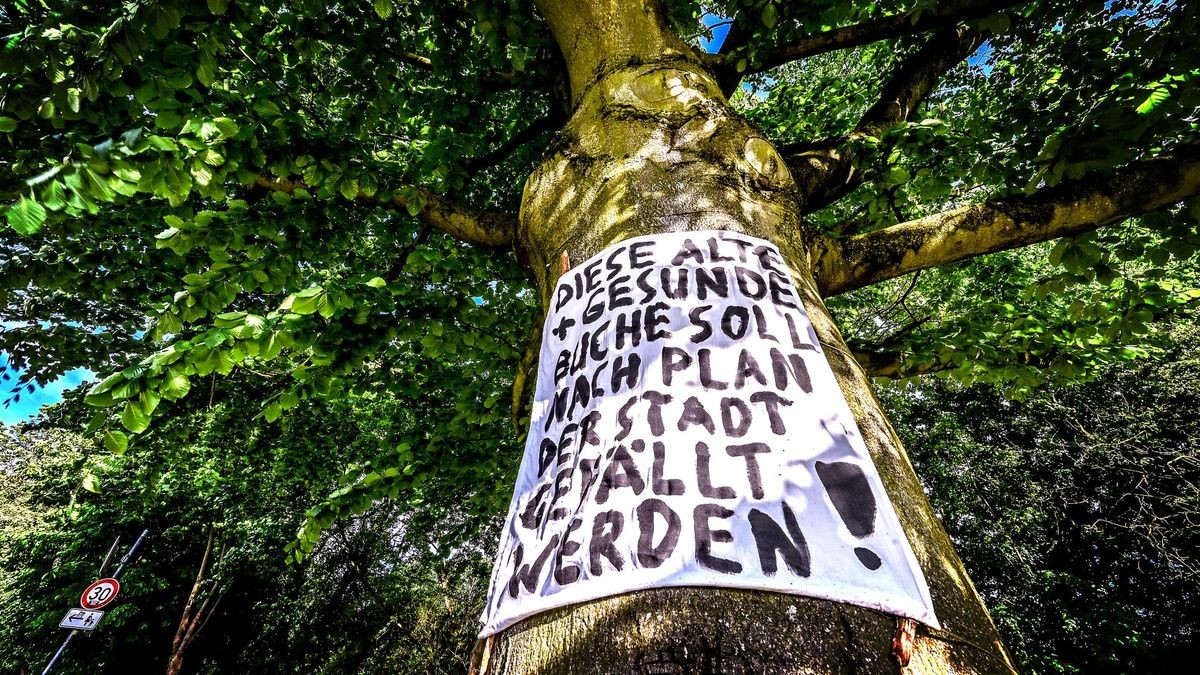 DIESE ALTE
+ GESUNDE
BUCHE SOLL
NACH PLAN
DER STADT
GEFÄLLT
WERDEN!
30